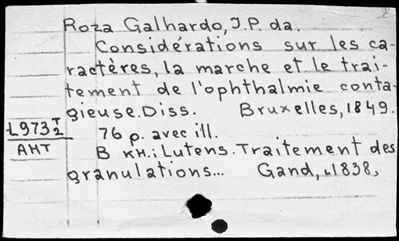 Roza Galhardo, J.P. da.
Considérations sur les ca-
ractères, la marche et le trai-
tement de l'ophthalmie conta-
gieuse. Diss. Bruxelles, 1849.
L973 T/2
76 p. avec ill.
АНТ
В кн.: Lutens. Traitement des
granulations... Gand, 1838,